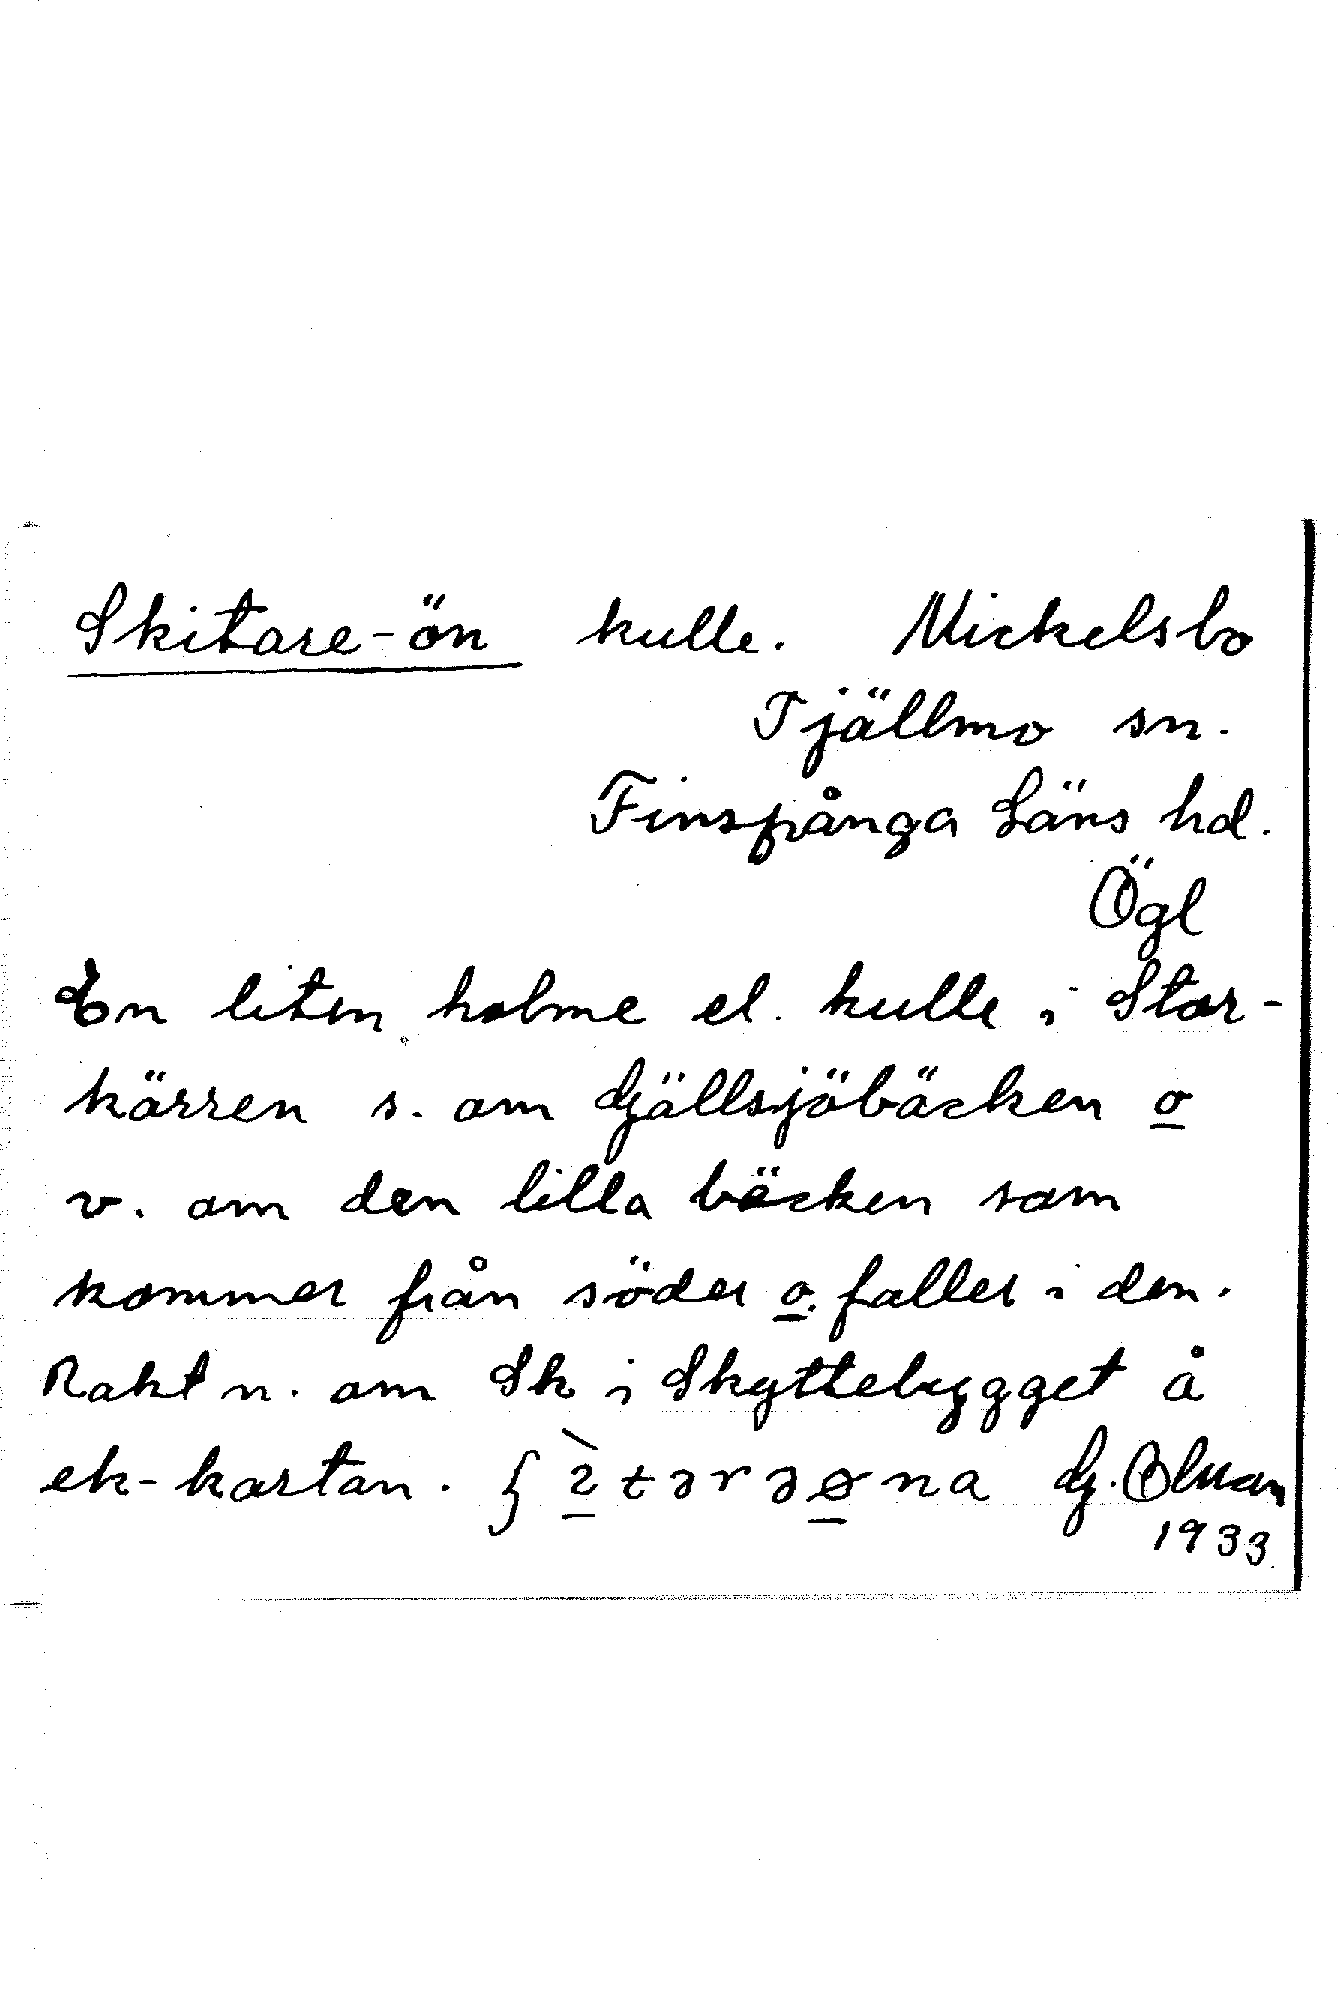 Skitare-ön kulle. Mickelsbo
Tjällmo sn.
Finspånga Läns hd.
Ögl
En liten holme el. kulle i Stor-
kärren s. om Gjällsjöbäcken o
v. om den lilla bäcken som
kommer från söder o. faller i den.
Rakt n. om Sk i Skyttebygget å
ek-kartan. ʃ ì̠tərəø̠na G. Olsson
1933